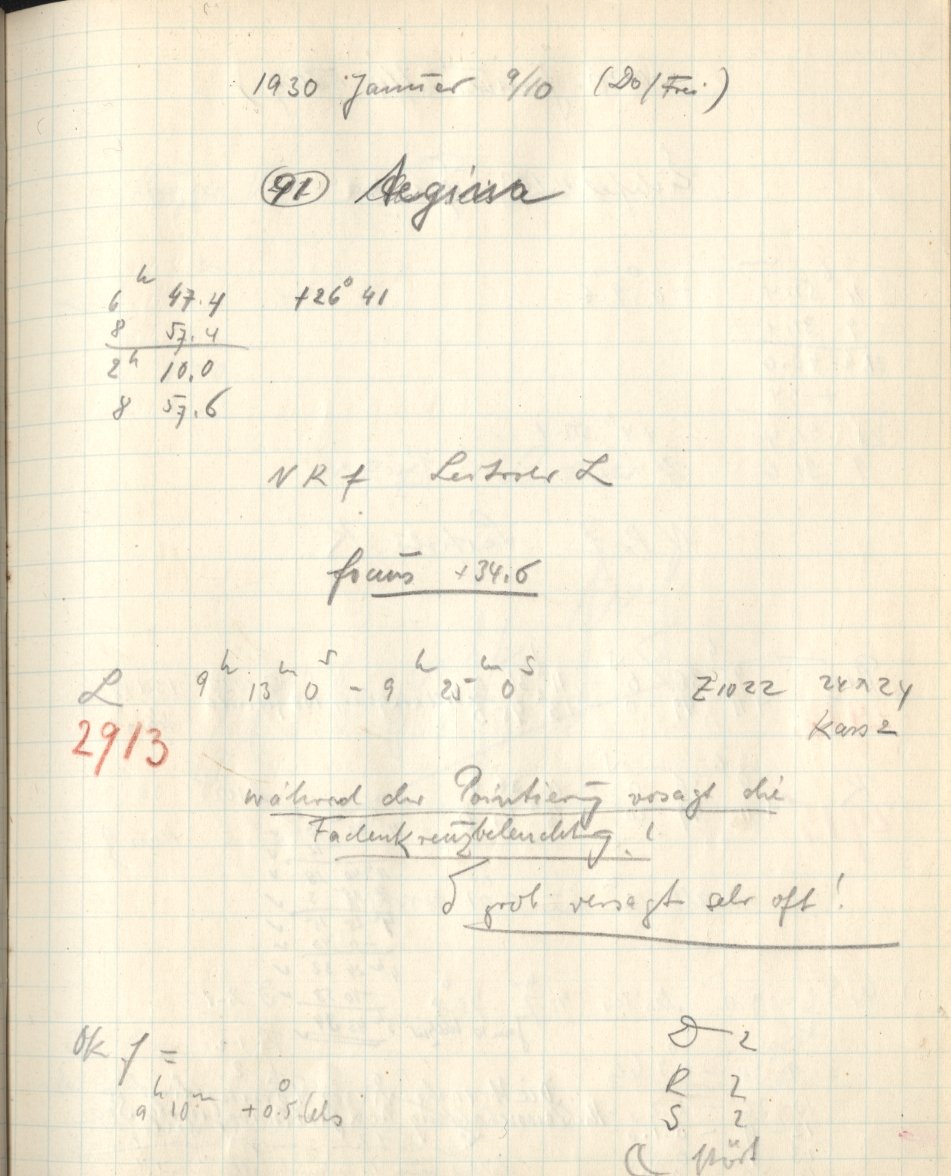 1930 Januar 9/10 (Do/Frei)
91 Aegina
6h 47.4 +26° 41
8 57.4
2h 10.0
8 57.6
N R f Leitrohr L
focus +34.6
L 9h 13m 0s - 9h 25m 0s Z1022 24x24
2913 Kass 2
während der Pointierung versagt die
Fadenkreuzbeleuchtung!
δ grob versagt sehr oft!
Ok f =
D 2
9h 10m +0°.5 Cels
R 2
S 2
☾ stört